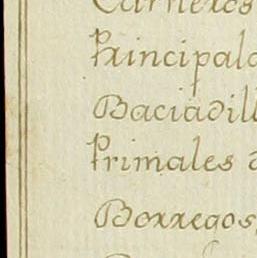 Carneros
Principal
Baciadill
Primales
Borregos,